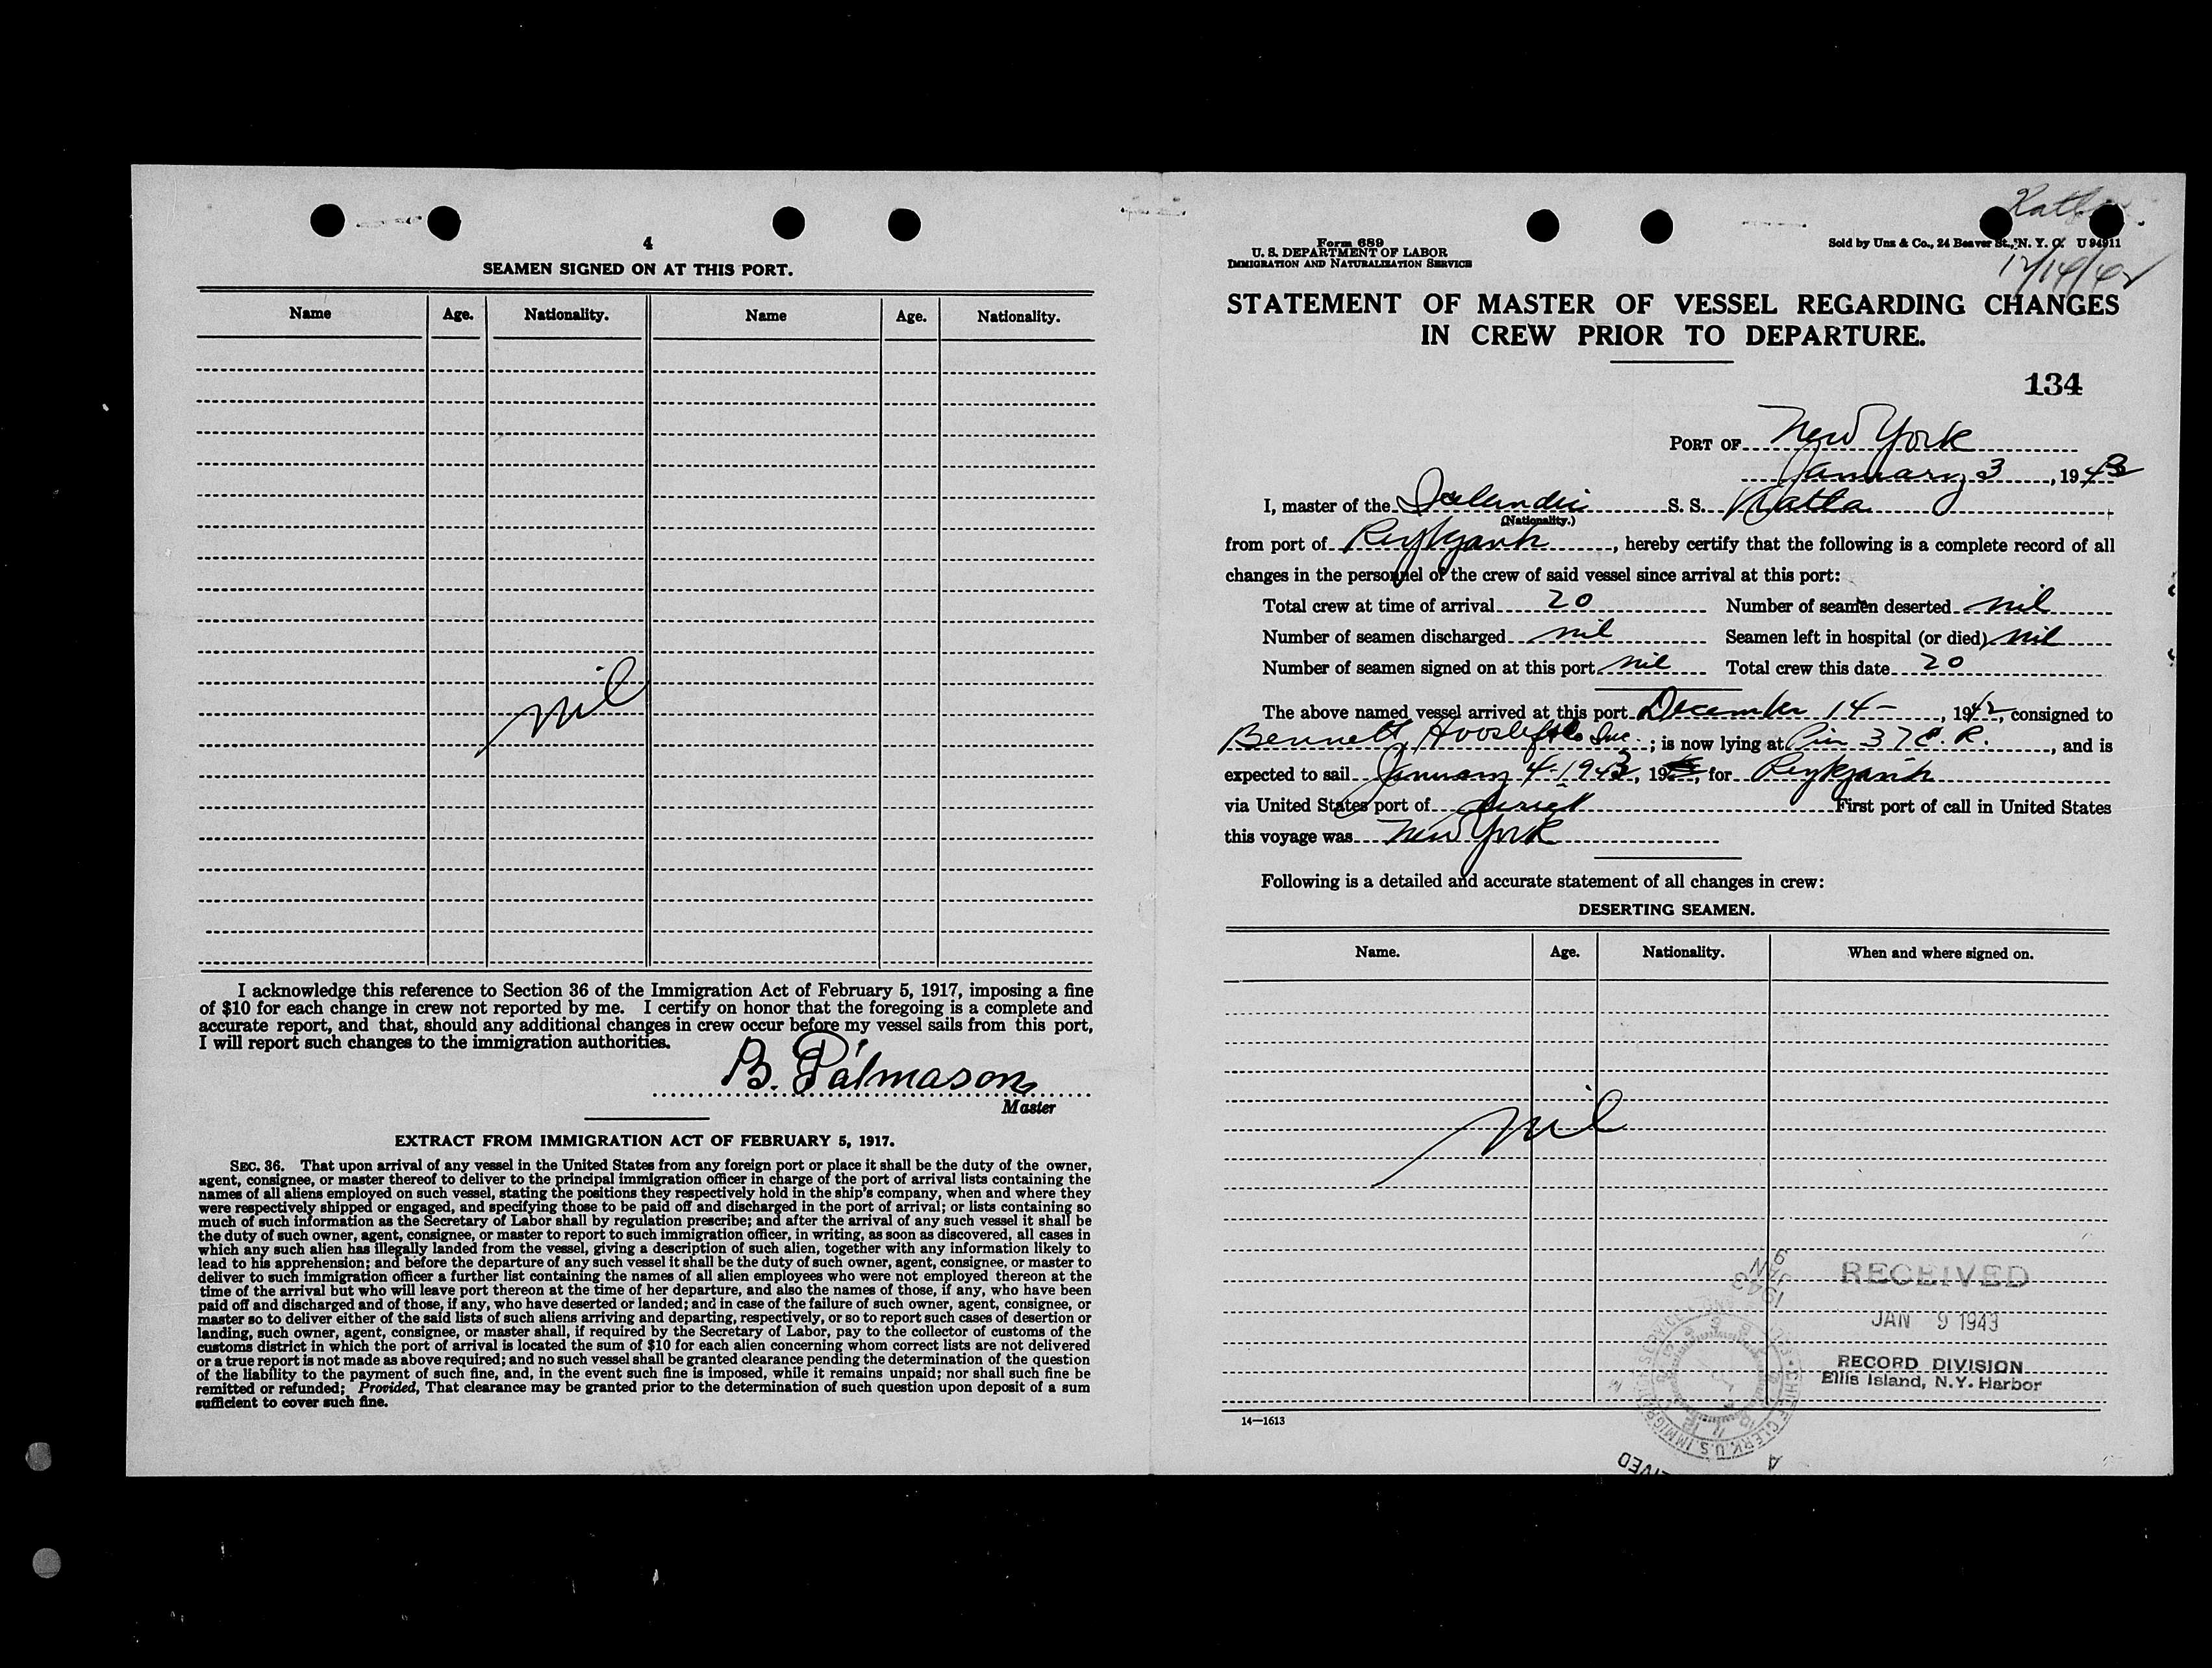 4
SEAMEN SIGNED ON AT THIS PORT.
Name Age. Nationality. Name Age. Nationality.
nil
I acknowledge this reference to Section 36 of the Immigration Act of February 5, 1917, imposing a fine
of $10 for each change in crew not reported by me. I certify on honor that the foregoing is a complete and
accurate report, and that, should any additional changes in crew occur before my vessel sails from this port,
I will report such changes to the immigration authorities.
B. Pálmason
Master
EXTRACT FROM IMMIGRATION ACT OF FEBRUARY 5, 1917.
SEC. 36. That upon arrival of any vessel in the United States from any foreign port or place it shall be the duty of the owner,
agent, consignee, or master thereof to deliver to the principal immigration officer in charge of the port of arrival lists containing the
names of all aliens employed on such vessel, stating the positions they respectively hold in the ship's company, when and where they
were respectively shipped or engaged, and specifying those to be paid off and discharged in the port of arrival; or lists containing so
much of such information as the Secretary of Labor shall by regulation prescribe; and after the arrival of any such vessel it shall be
the duty of such owner, agent, consignee, or master to report to such immigration officer, in writing, as soon as discovered, all cases in
which any such alien has illegally landed from the vessel, giving a description of such alien, together with any information likely to
lead to his apprehension; and before the departure of any such vessel it shall be the duty of such owner, agent, consignee, or master to
deliver to such immigration officer a further list containing the names of all alien employees who were not employed thereon at the
time of the arrival but who will leave port thereon at the time of her departure, and also the names of those, if any, who have been
paid off and discharged and of those, if any, who have deserted or landed; and in case of the failure of such owner, agent, consignee, or
master so to deliver either of the said lists of such aliens arriving and departing, respectively, or so to report such cases of desertion or
landing, such owner, agent, consignee, or master shall, if required by the Secretary of Labor, pay to the collector of customs of the
customs district in which the port of arrival is located the sum of $10 for each alien concerning whom correct lists are not delivered
or a true report is not made as above required; and no such vessel shall be granted clearance pending the determination of the question
of the liability to the payment of such fine, and, in the event such fine is imposed, while it remains unpaid; nor shall such fine be
remitted or refunded; Provided, That clearance may be granted prior to the determination of such question upon deposit of a sum
sufficient to cover such fine.
Katla
12/14/42
Form 689
U. S. DEPARTMENT OF LABOR
IMMIGRATION AND NATURALIZATION SERVICE
Sold by Unz & Co., 24 Beaver St., N. Y. C. U 94911
STATEMENT OF MASTER OF VESSEL REGARDING CHANGES
IN CREW PRIOR TO DEPARTURE.
134
PORT OF New York
January 3, 1943
I, master of the Icelandic S. S. Katla
(Nationality.)
from port of Reykjavik, hereby certify that the following is a complete record of all
changes in the personnel of the crew of said vessel since arrival at this port:
Total crew at time of arrival 20 Number of seamen deserted nil
Number of seamen discharged nil Seamen left in hospital (or died) nil
Number of seamen signed on at this port nil Total crew this date 20
The above named vessel arrived at this port December 14-, 1942, consigned to
Bennett Inc.; is now lying at Pier 37 E. R., and is
expected to sail January 4-1943, 19, for Reykjavik
via United States port of direct First port of call in United States
this voyage was New York
Following is a detailed and accurate statement of all changes in crew:
DESERTING SEAMEN.
Name. Age. Nationality. When and where signed on.
nil
RECEIVED
JAN 9 1943
RECORD DIVISION
Ellis Island, N.Y. Harbor
1943
JAN 9
CHIEF CLERK, U.S. IMMIGRATION SERVICE
14—1613